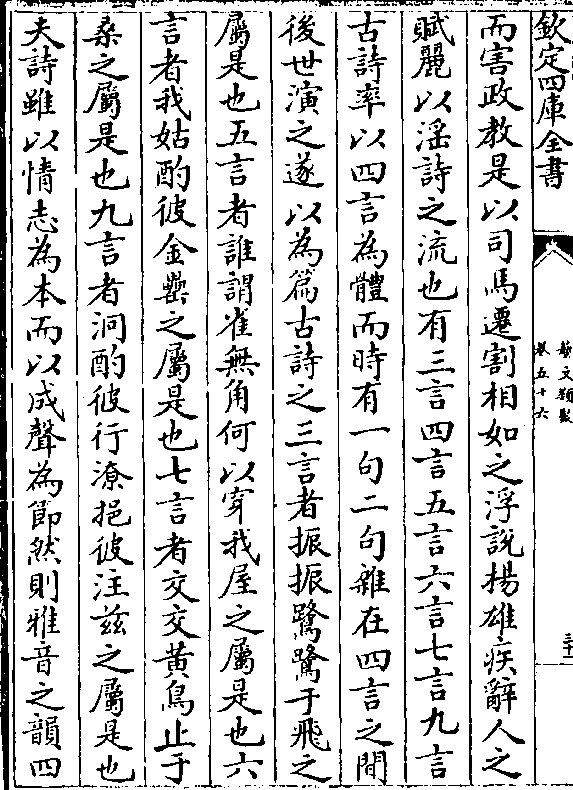 欽定四庫全書
藝文類聚
卷五十六
三十一
而害政教是以司馬遷割相如之浮說揚雄疾辭人之
賦麗以淫詩之流也有三言四言五言六言七言九言
古詩率以四言為體而時有一句二句雜在四言之間
後世演之遂以為篇古詩之三言者振振鷺鷺于飛之
屬是也五言者誰謂雀無角何以穿我屋之屬是也六
言者我姑酌彼金罍之屬是也七言者交交黃鳥止于
桑之屬是也九言者泂酌彼行潦挹彼注茲之屬是也
夫詩雖以情志為本而以成聲為節然則雅音之韻四